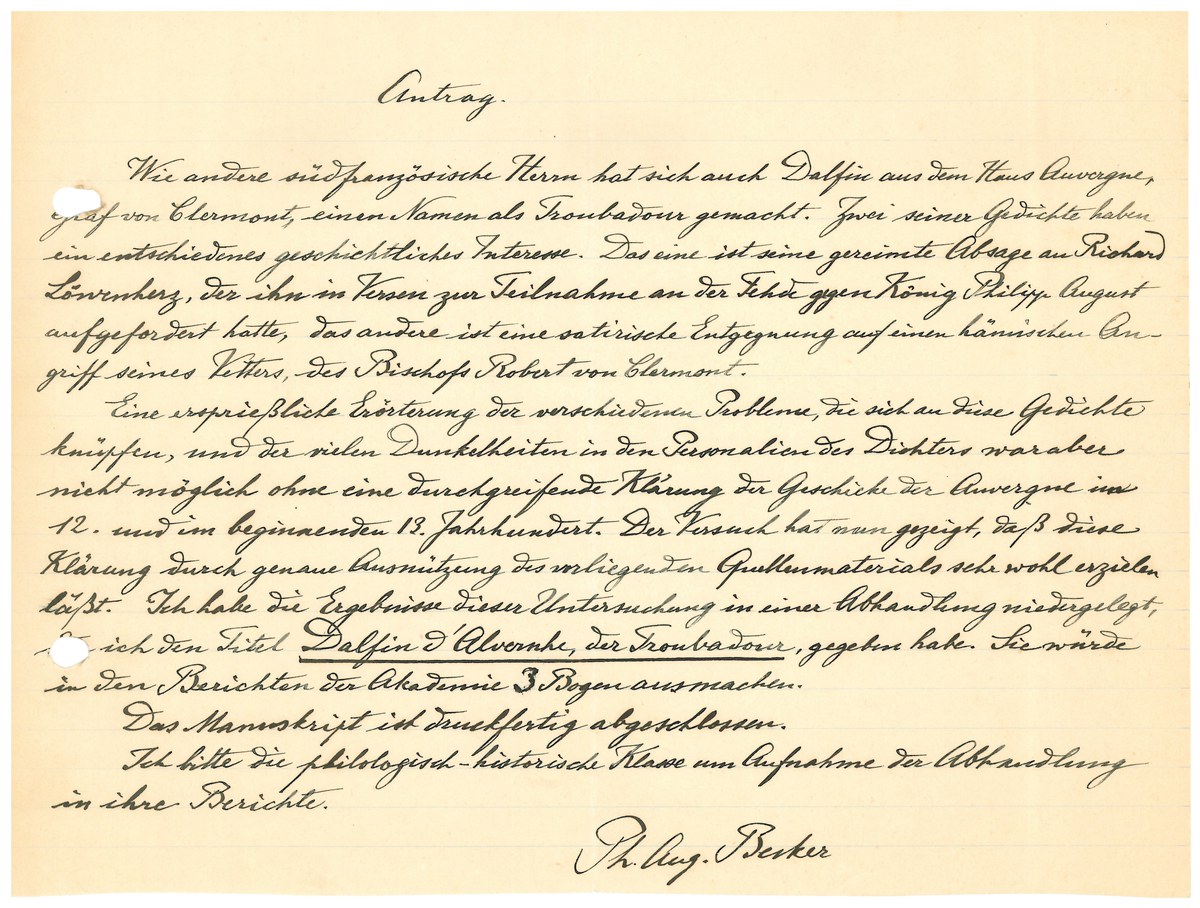 Antrag.
Wie andere südfranzösische Herrn hat sich auch Dalfin aus dem Haus Auvergne,
Graf von Clermont, einen Namen als Troubadour gemacht. Zwei seiner Gedichte haben
ein entschiedenes geschichtliches Interesse. Das eine ist seine gereimte Absage an Richard
Löwenherz, der ihn in Versen zur Teilnahme an der Fehde gegen König Philipp August
aufgefordert hatte, das andere ist eine satirische Entgegnung auf einen hämischen An-
griff seines Vetters, des Bischofs Robert von Clermont.
Eine ersprießliche Erörterung der verschiedenen Probleme, die sich an diese Gedichte
knüpfen, und der vielen Dunkelheiten in den Personalien des Dichters war aber
nicht möglich ohne eine durchgreifende Klärung der Geschicke der Auvergne im
12. und im beginnenden 13. Jahrhundert. Der Versuch hat nun gezeigt, daß diese
Klärung durch genaue Ausnützung des vorliegenden Quellenmaterials sehr wohl erzielen
läßt. Ich habe die Ergebnisse dieser Untersuchung in einer Abhandlung niedergelegt,
ich den Titel Dalfin d'Alvernhe, der Troubadour, gegeben habe. Sie würde
in den Berichten der Akademie 3 Bogen ausmachen.
Das Manuskript ist druckfertig abgeschlossen.
Ich bitte die philologisch-historische Klasse um Aufnahme der Abhandlung
in ihre Berichte.
Ph. Aug. Becker